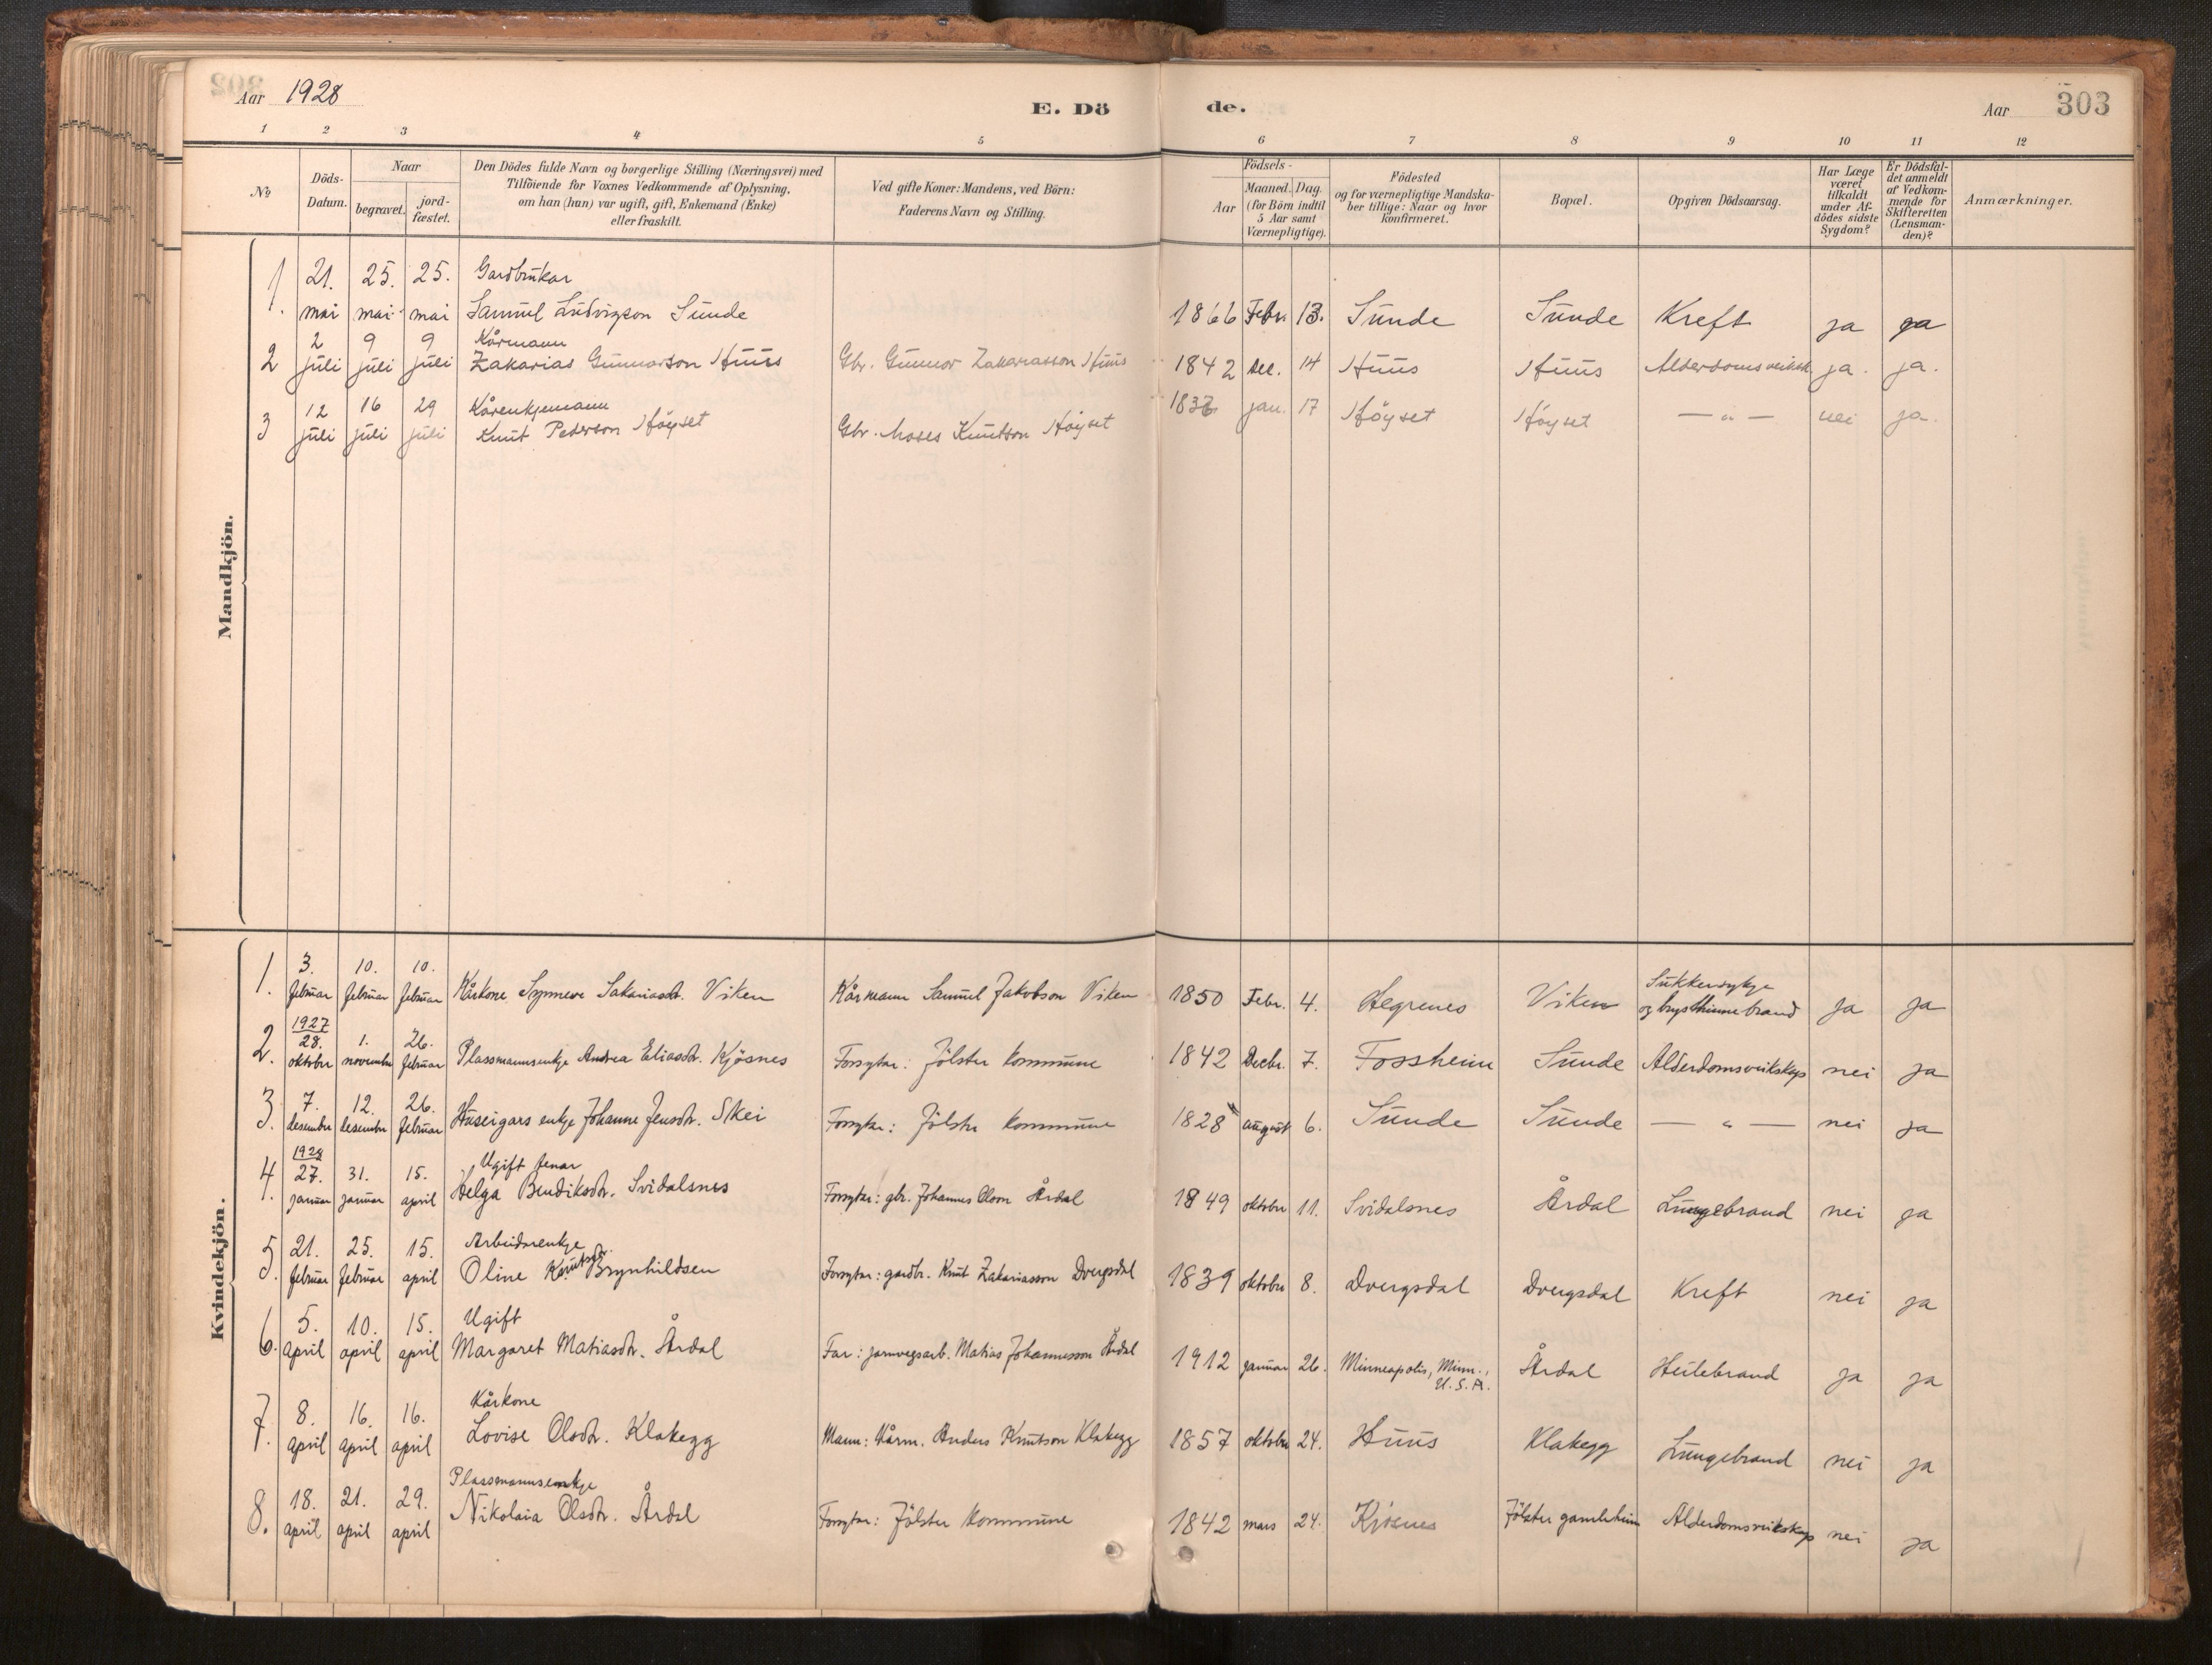 Aar 1928
E. Dö
de.
Aar
303
1 2 3 4 5 6 7 8 9 10 11 12
No
Döds-
Datum.
Naar
begravet.
jord-
fæstet.
Den Dödes fulde Navn og borgerlige Stilling (Næringsvei) med
Tilföiende for Voxnes Vedkommende af Oplysning,
om han (hun) var ugift, gift, Enkemand (Enke)
eller fraskilt.
Ved gifte Koner: Mandens, ved Börn:
Faderens Navn og Stilling.
Födsels-
Aar
Maaned. Dag.
(for Börn indtil
5 Aar samt
Værnepligtige).
Födested
og for værnepligtige Mandska-
ber tillige: Naar og hvor
konfirmeret.
Bopæl.
Opgiven Dödsaarsag.
Har Læge
været
tilkaldt
under Af-
dödes sidste
Sygdom?
Er Dödsfal-
det anmeldt
af Vedkom-
mende for
Skifteretten
(Lensman-
den)?
Anmærkninger.
Mandkjön.
1. 21. mai 25. mai 25. mai Gardbrukar
Samuel Ludvigson Sunde 1866 Febr. 13. Sunde Sunde Kreft ja ja
2 2 juli 9 juli 9 juli Kårmann
Zakarias Gunnarson Huus Gbr. Gunnar Zakariasson Huus 1842 des. 14 Huus Huus ja. ja.
3 12 juli 16 juli 29 juli Kårenkjemann
Knut Pederson Høyset Gbr. Moses Knutson Høyset jan. 17 Høyset Høyset — " — nei ja.
Kvindekjön.
1. 3. februar 10. februar 10. februar Kårkone Synneve Sakariasdr. Viken Kårmann Samuel Jakobson Viken 1850 Febr. 4. Hegrenes Viken Sukkersykje
og brysthinnebrand ja ja
1927
2. 28. oktober 1. november 26. februar Plassmannsenkje Andrea Eliasdr. Kjøsnes Forsytar: Jölster kommune 1842 Decbr. 7. Fossheim Sunde Alderdomsveikskap nei ja
3. 7. desember 12. desember 26. februar Huseigars enkje Johanne Jensdr. Skei Forsytar: Jölster kommune 1828 august 6. Sunde Sunde — " — nei ja
1928
4. 27. januar 31. januar 15. april Ugift tenar
Helga Bendiksdr. Svidalsnes Forsytar: gbr. Johannes Olson Årdal 1849 oktober 11. Svidalsnes Årdal Lungebrand nei ja
5. 21. februar 25. februar 15. april Arbeidarenkje
Oline Knutsdr. Brynhildsen Forsytar: gardbr. Knut Zakariasson Dvergsdal 1839 oktober 8. Dvergsdal Dvergsdal Kreft nei ja
6. 5. april 10. april 15. april Ugift
Margaret Matiasdr. Årdal Far: jarnvegsarb. Matias Johannesson Årdal 1912 januar 26. Minneapolis, Minn.,
U.S.A. Årdal Heilebrand ja ja
7. 8. april 16. april 16. april Kårkone
Lovise Olsdr. Klakegg Mann: Kårm. Anders Knutson Klakegg 1857 oktober 24. Huus Klakegg Lungebrand nei ja
8. 18. april 21. april 29. april Plassmannsenkje
Nikolaia Olsdr. Årdal Forsytar: Jölster kommune 1842 mars 24. Kjøsnes Jölster gamleheim Alderdomsveikskap nei ja